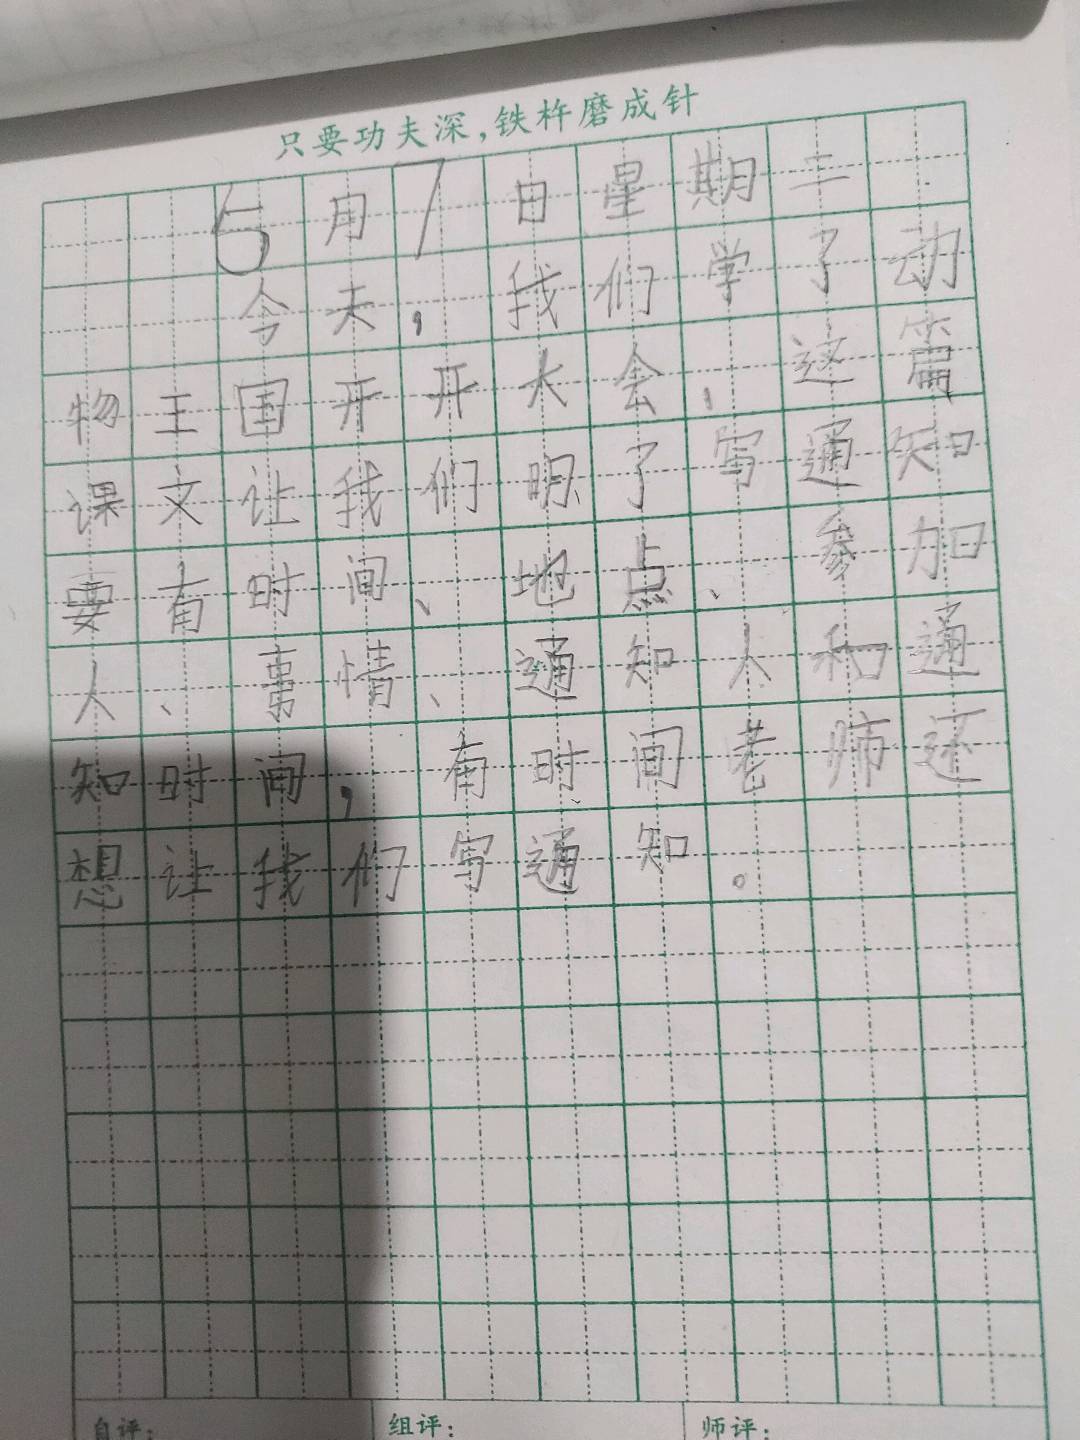 只要功夫深，铁杵磨成针
5月7日星期二
今天，我们学了动
物王国开开大会，这篇
课文让我们明了写通知
要有时间、地点、参加
人、事情、通知人和通
知时间，有时间老师还
想让我们写通知。
自评： 组评： 师评：